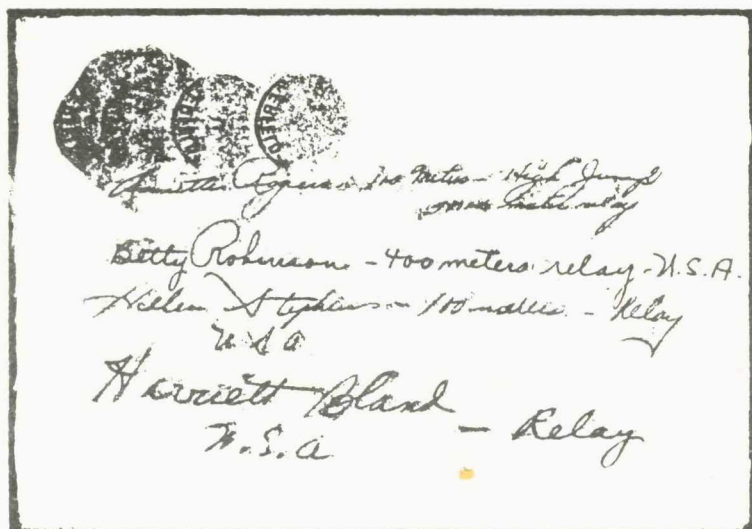 Annette Rogers - 100 Meters - High Jump
400 meters relay
Betty Robinson - 400 meters relay - U.S.A.
Helen Stephens - 100 metres - Relay
U S A
Harriett Bland - Relay
U.S.A